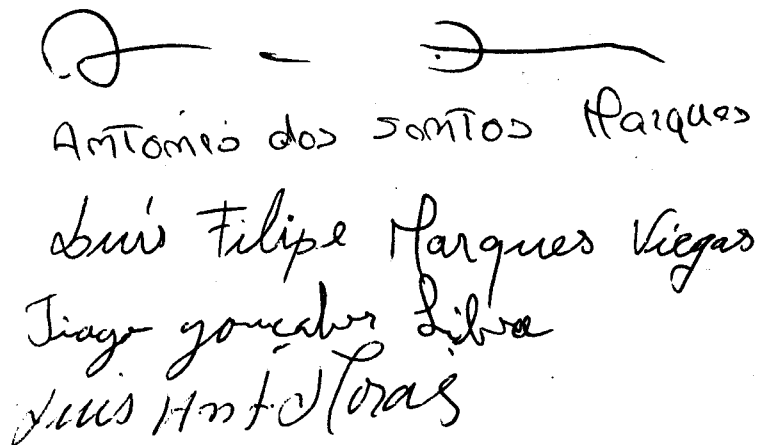 António dos Santos Marques
Luís Filipe Marques Viegas
Tiago Gonçalves
Luis